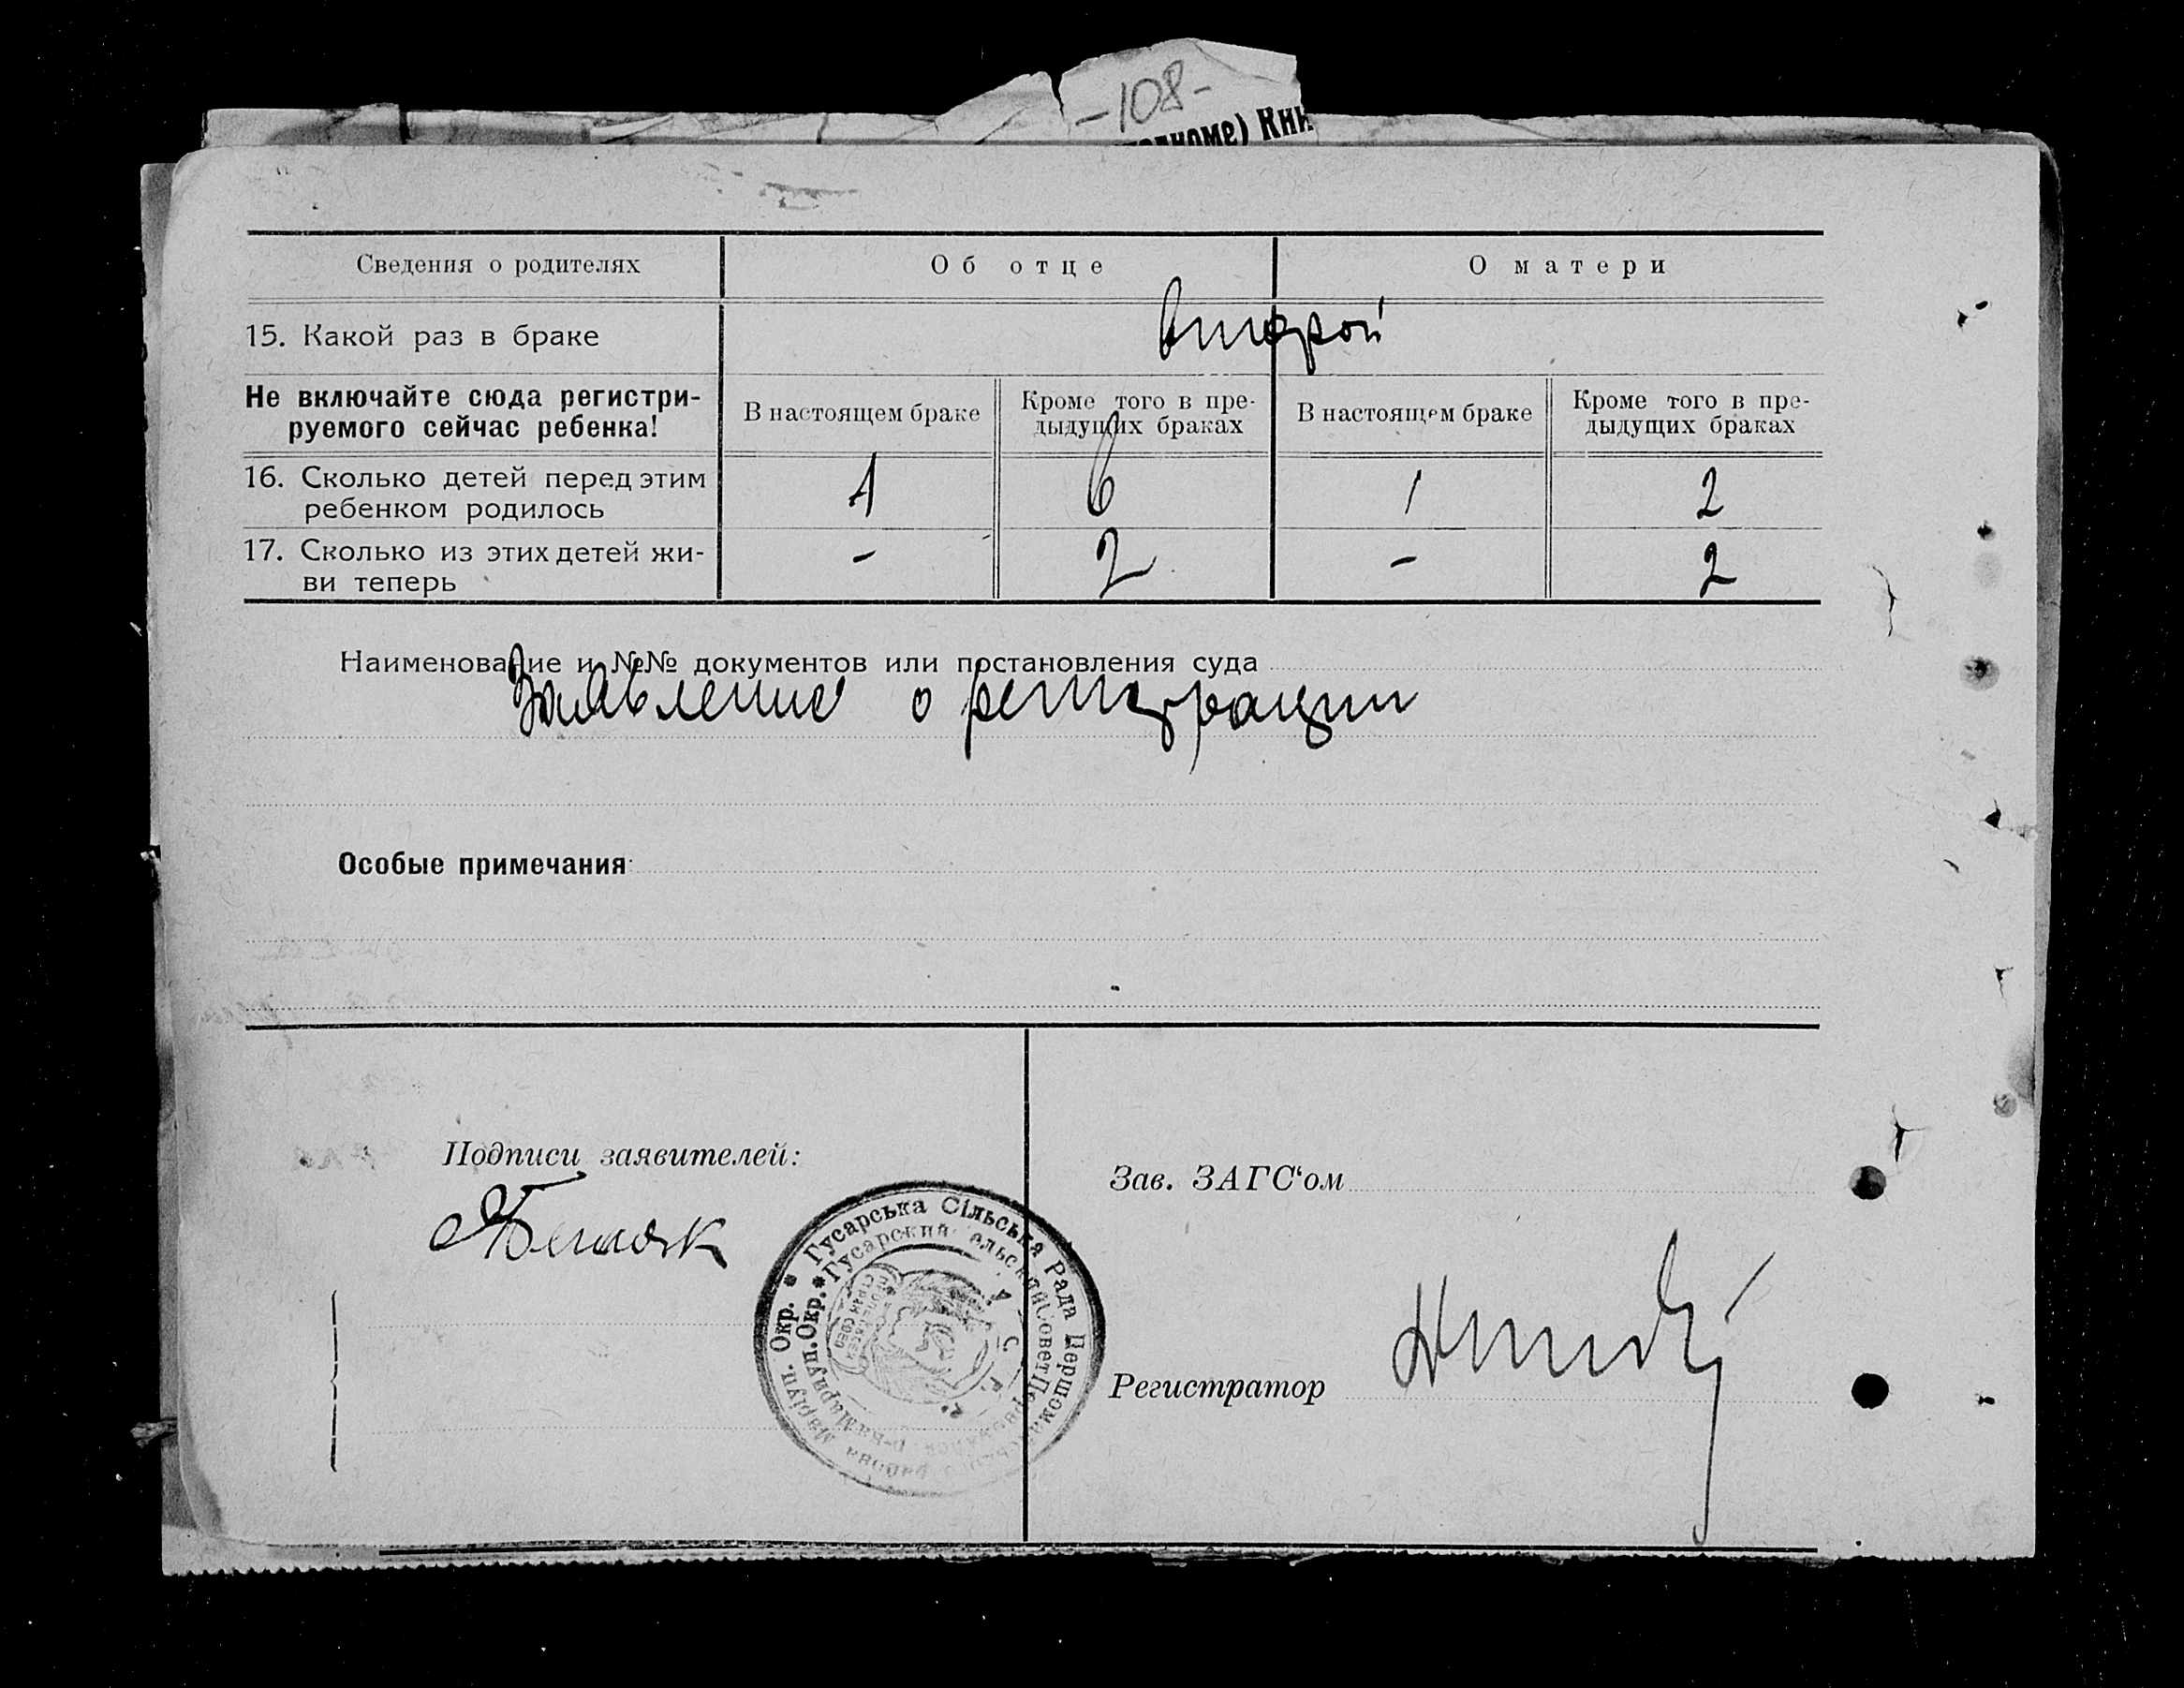 -108-
Сведения о родителях
Об отце
О матери
15. Какой раз в браке
второй
Не включайте сюда регистри-
руемого сейчас ребенка!
В настоящем браке
Кроме того в пре-
дыдущих браках
В настоящем браке
Кроме того в пре-
дыдущих браках
16. Сколько детей перед этим
ребенком родилось
1
6
1
2
17. Сколько из этих детей жи-
ви теперь
-
2
-
2
Наименование и №№ документов или постановления суда
Заявление о регистрации
Особые примечания
Подписи заявителей:
Гусарська Сільська Рада Першомайського району Маріуп. Окр.
Зав. ЗАГС‘ом
Регистратор